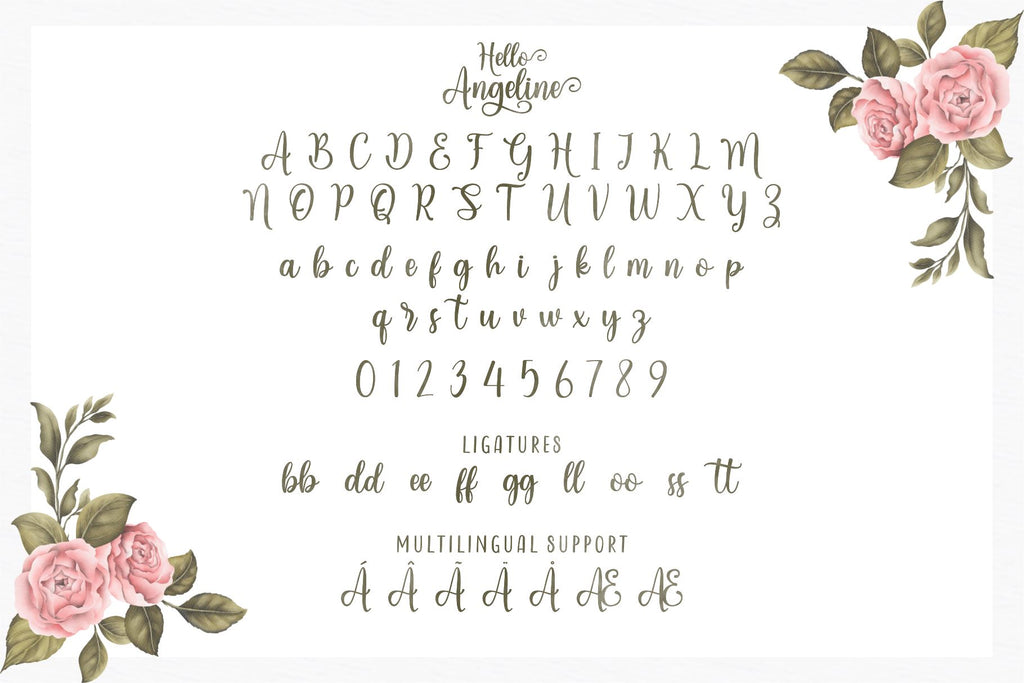 Hello
Angeline
A B C D E F G H I J K L M
N O P Q R S T U V W X Y Z
a b c d e f g h i j k l m n o p
q r s t u v w x y z
0 1 2 3 4 5 6 7 8 9
LIGATURES
bb dd ee ff gg ll oo ss tt
MULTILINGUAL SUPPORT
Á Â Ã Ä Å Æ Æ